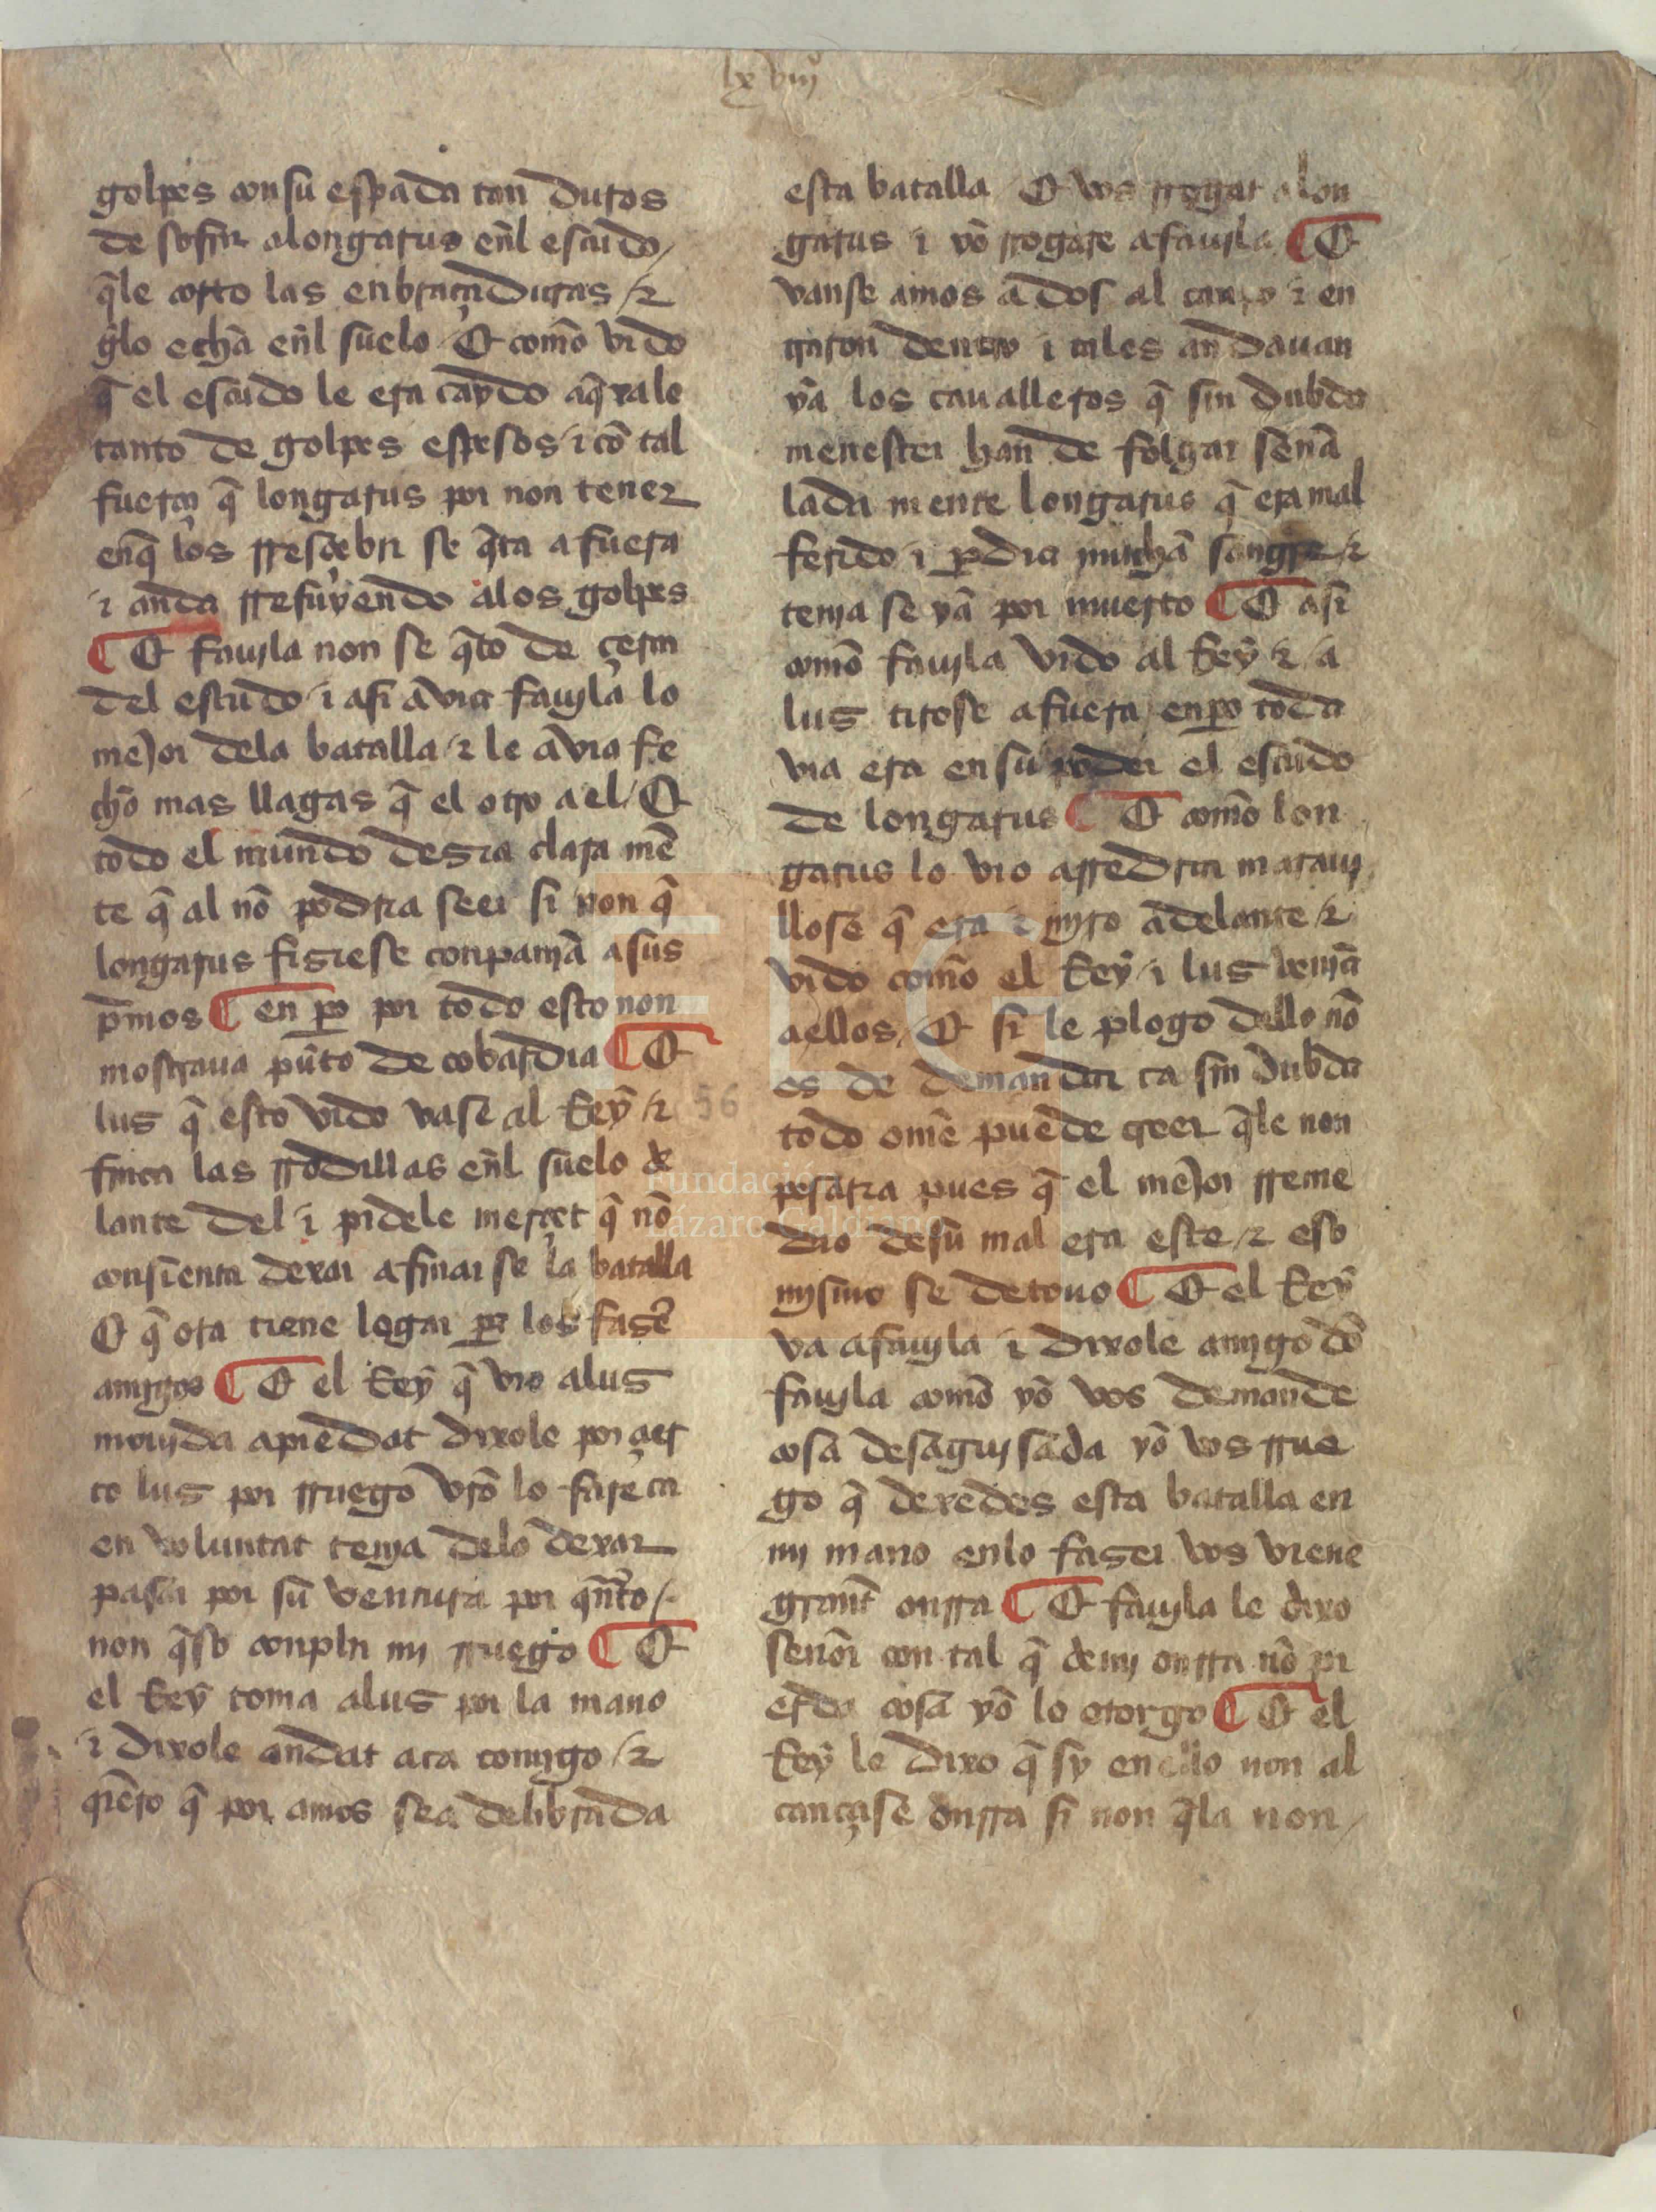 lxviijº
golpes con su espada tan duros
de sofrir a longarus enl escudo /
q̃le corto las enbraçaduras / ⁊
g̃lo echa enl suelo / E como vido
q̃ el escudo le era caydo aq̃xale
tanto de golpes espesos / i cõ tal
fuerça q̃ longarus por non tener
enq̃ los rresçebir se q̃ta a fuera
i anda rrefuyendo alos golpes
¶ E fauila non se q̃to de çerca
del escudo / i asi avia fauila lo
mejor dela batalla / ⁊ le avia fe
cho mas llagas q̃ el otro a el / E
todo el mundo desia clara mẽ
te q̃ al nõ podria seer si non q̃
longarus fisiese conpania a sus
p̃mos ¶ en ꝑo por todo esto non
mostraua pũto de cobardia ¶ E
lus q̃ esto vido vase al Rey / ⁊
finca las rrodillas enl suelo de
lante del / i pidele merçet q̃ nõ
consienta dexar afinar se la batalla
E q̃ ora tiene logar ꝑa los faser
amigos ¶ E el Rey q̃ vio alus
mouida apiedat dixole por çier
to lus por rruego vr̃o lo fare ca
en voluntat tenia delo dexar
pasar por su ventura por qñto /.
non q̃so conplir mi rruego ¶ E
el Rey toma alus por la mano
i dixole andat aca comigo / ⁊
q̃ero q̃ por amos sea delibrada
esta batalla E vos rrogat a lon
garus i yo rrogare a fauila ¶ E
vanse amos a dos al canpo i en
traron dentro i tales andauan
ya los caualleros q̃ sin dubda
menester han de folgar señã
lada mente longarus q̃ era mal
ferido i ꝑdia mucha sangre / ⁊
tenia se ya por muerto ¶ E asi
como fauila vido al Rey / ⁊ / a
lus tirose a fuera / enꝑo toda
via era en su poder el escudo
de longarus ¶ E como lon
garus lo vio arredrar maraui
llose q̃ era i miro adelante / ⁊
vido como el Rey / i lus venia
aellos / E si le plogo dello nõ
es de demandar ca sin dubda
todo ome puede creer q̃le non
pesaria pues q̃ el mejor rreme
dio desu mal era este / ⁊ eso
mismo se detouo ¶ E el Rey
va a fauila i dixole amigo dõ
fauila como yo vos demande
cosa desaguisada yo vos rrue
go q̃ dexedes esta batalla en
mi mano enlo faser vos viene
grant onrra ¶ E fauila le dixo
señor con tal q̃ de mi onrra nõ pi
erda cosa yo lo otorgo ¶ E el
Rey le dixo q̃ sy en ello non al
cançase onrra si non q̃la non /
56
FLG
Fundación
Lázaro Galdiano